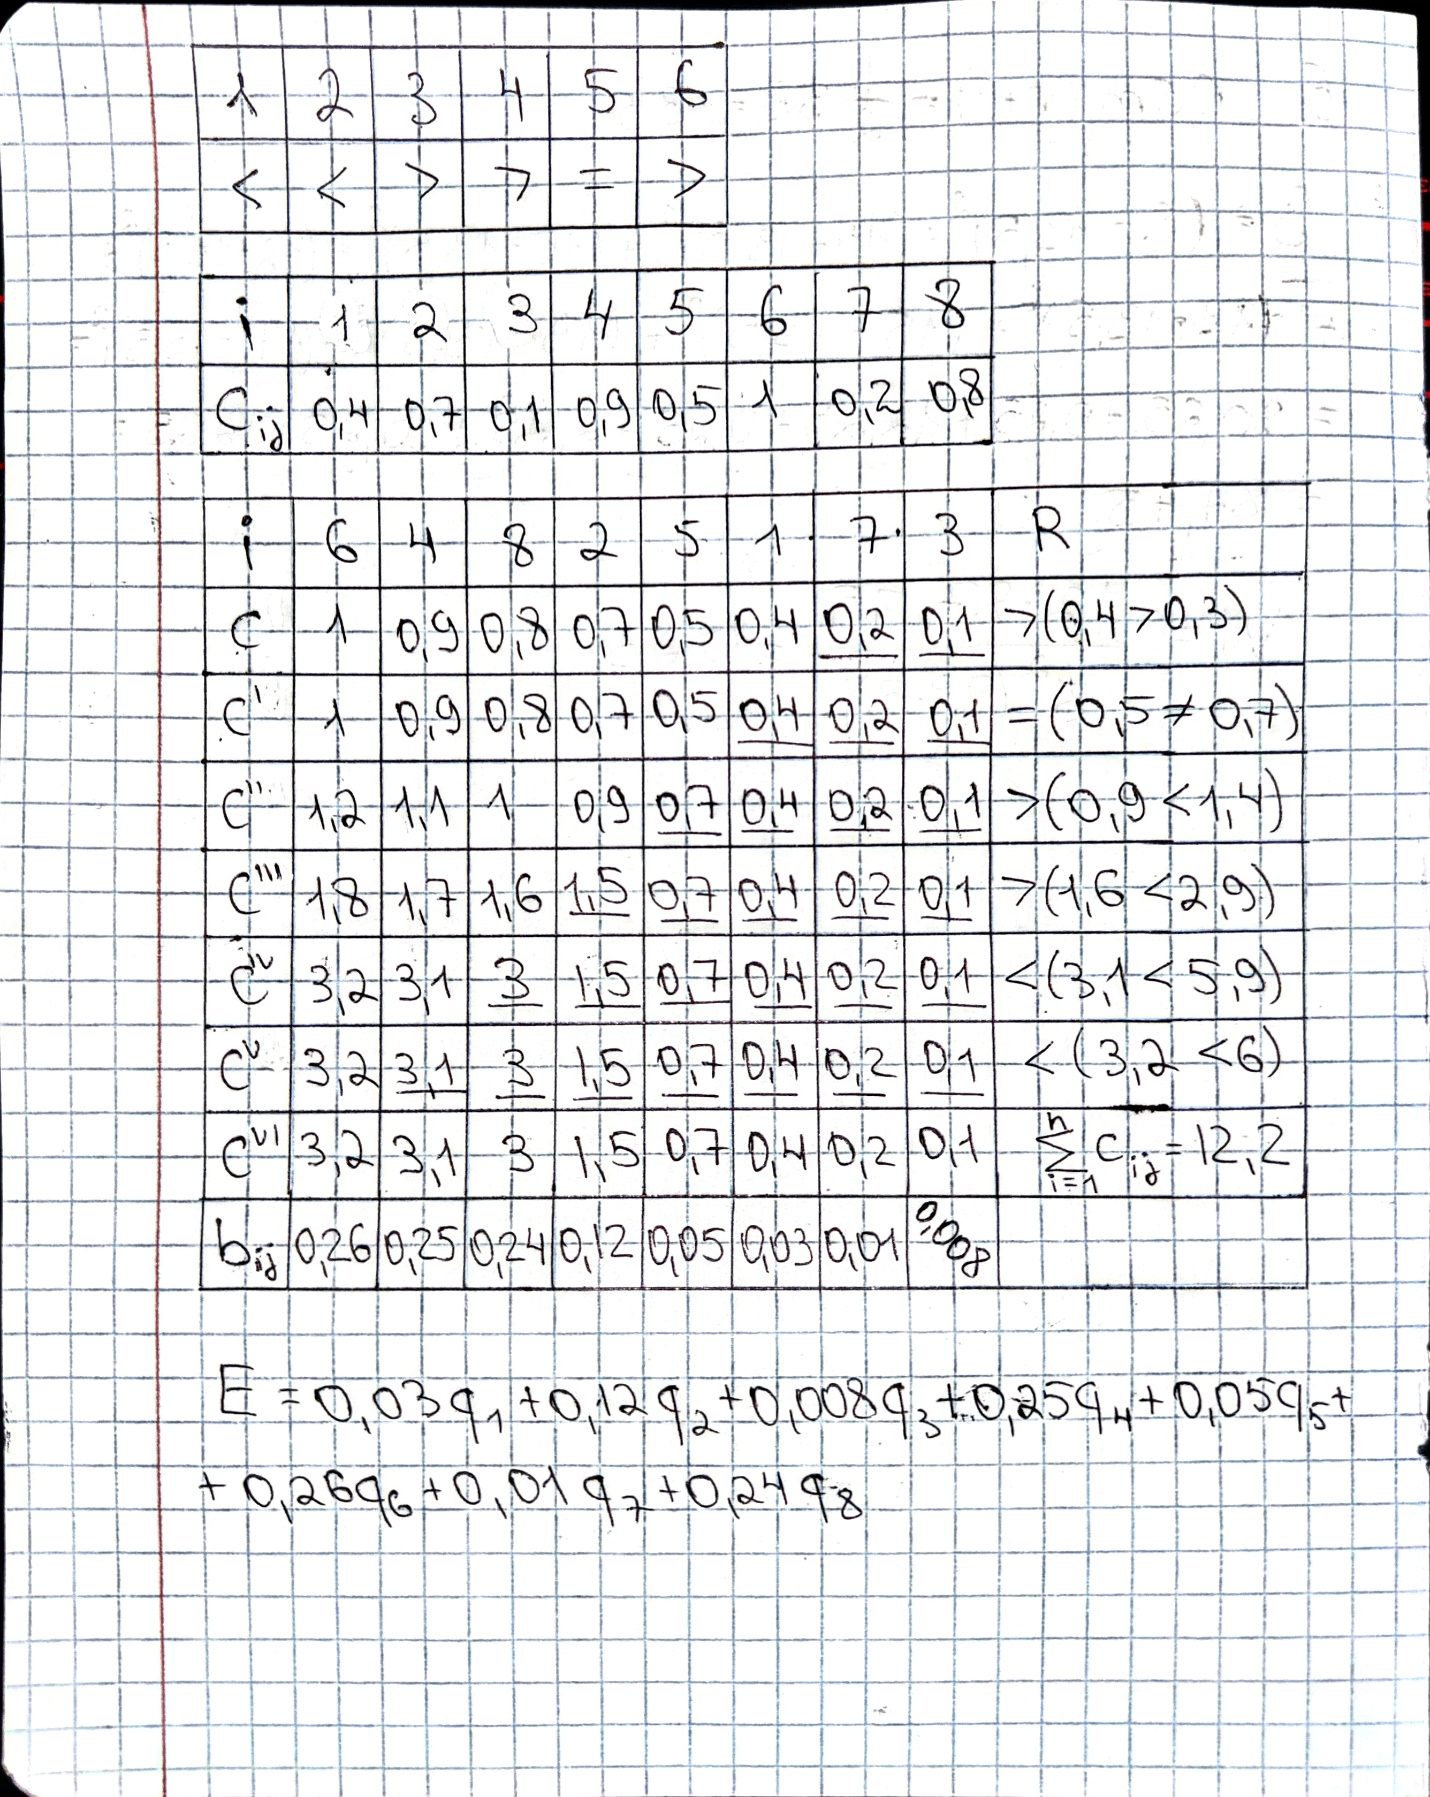 1 2 3 4 5 6
< < > > = >
i 1 2 3 4 5 6 7 8
Cij 0,4 0,7 0,1 0,9 0,5 1 0,2 0,8
i 6 4 8 2 5 1 7 3 R
C 1 0,9 0,8 0,7 0,5 0,4 0,2 0,1 >(0,4>0,3)
C' 1 0,9 0,8 0,7 0,5 0,4 0,2 0,1 =(0,5≠0,7)
C'' 1,2 1,1 1 0,9 0,7 0,4 0,2 0,1 >(0,9<1,4)
C''' 1,8 1,7 1,6 1,5 0,7 0,4 0,2 0,1 >(1,6<2,9)
C^IV 3,2 3,1 3 1,5 0,7 0,4 0,2 0,1 <(3,1<5,9)
C^V 3,2 3,1 3 1,5 0,7 0,4 0,2 0,1 <(3,2<6)
C^VI 3,2 3,1 3 1,5 0,7 0,4 0,2 0,1 n∑i=1 Cij=12,2
bij 0,26 0,25 0,24 0,12 0,05 0,03 0,01 0,008
E = 0,03q1+0,12q2+0,008q3+0,25q4+0,05q5+
+0,26q6+0,01q7+0,24q8